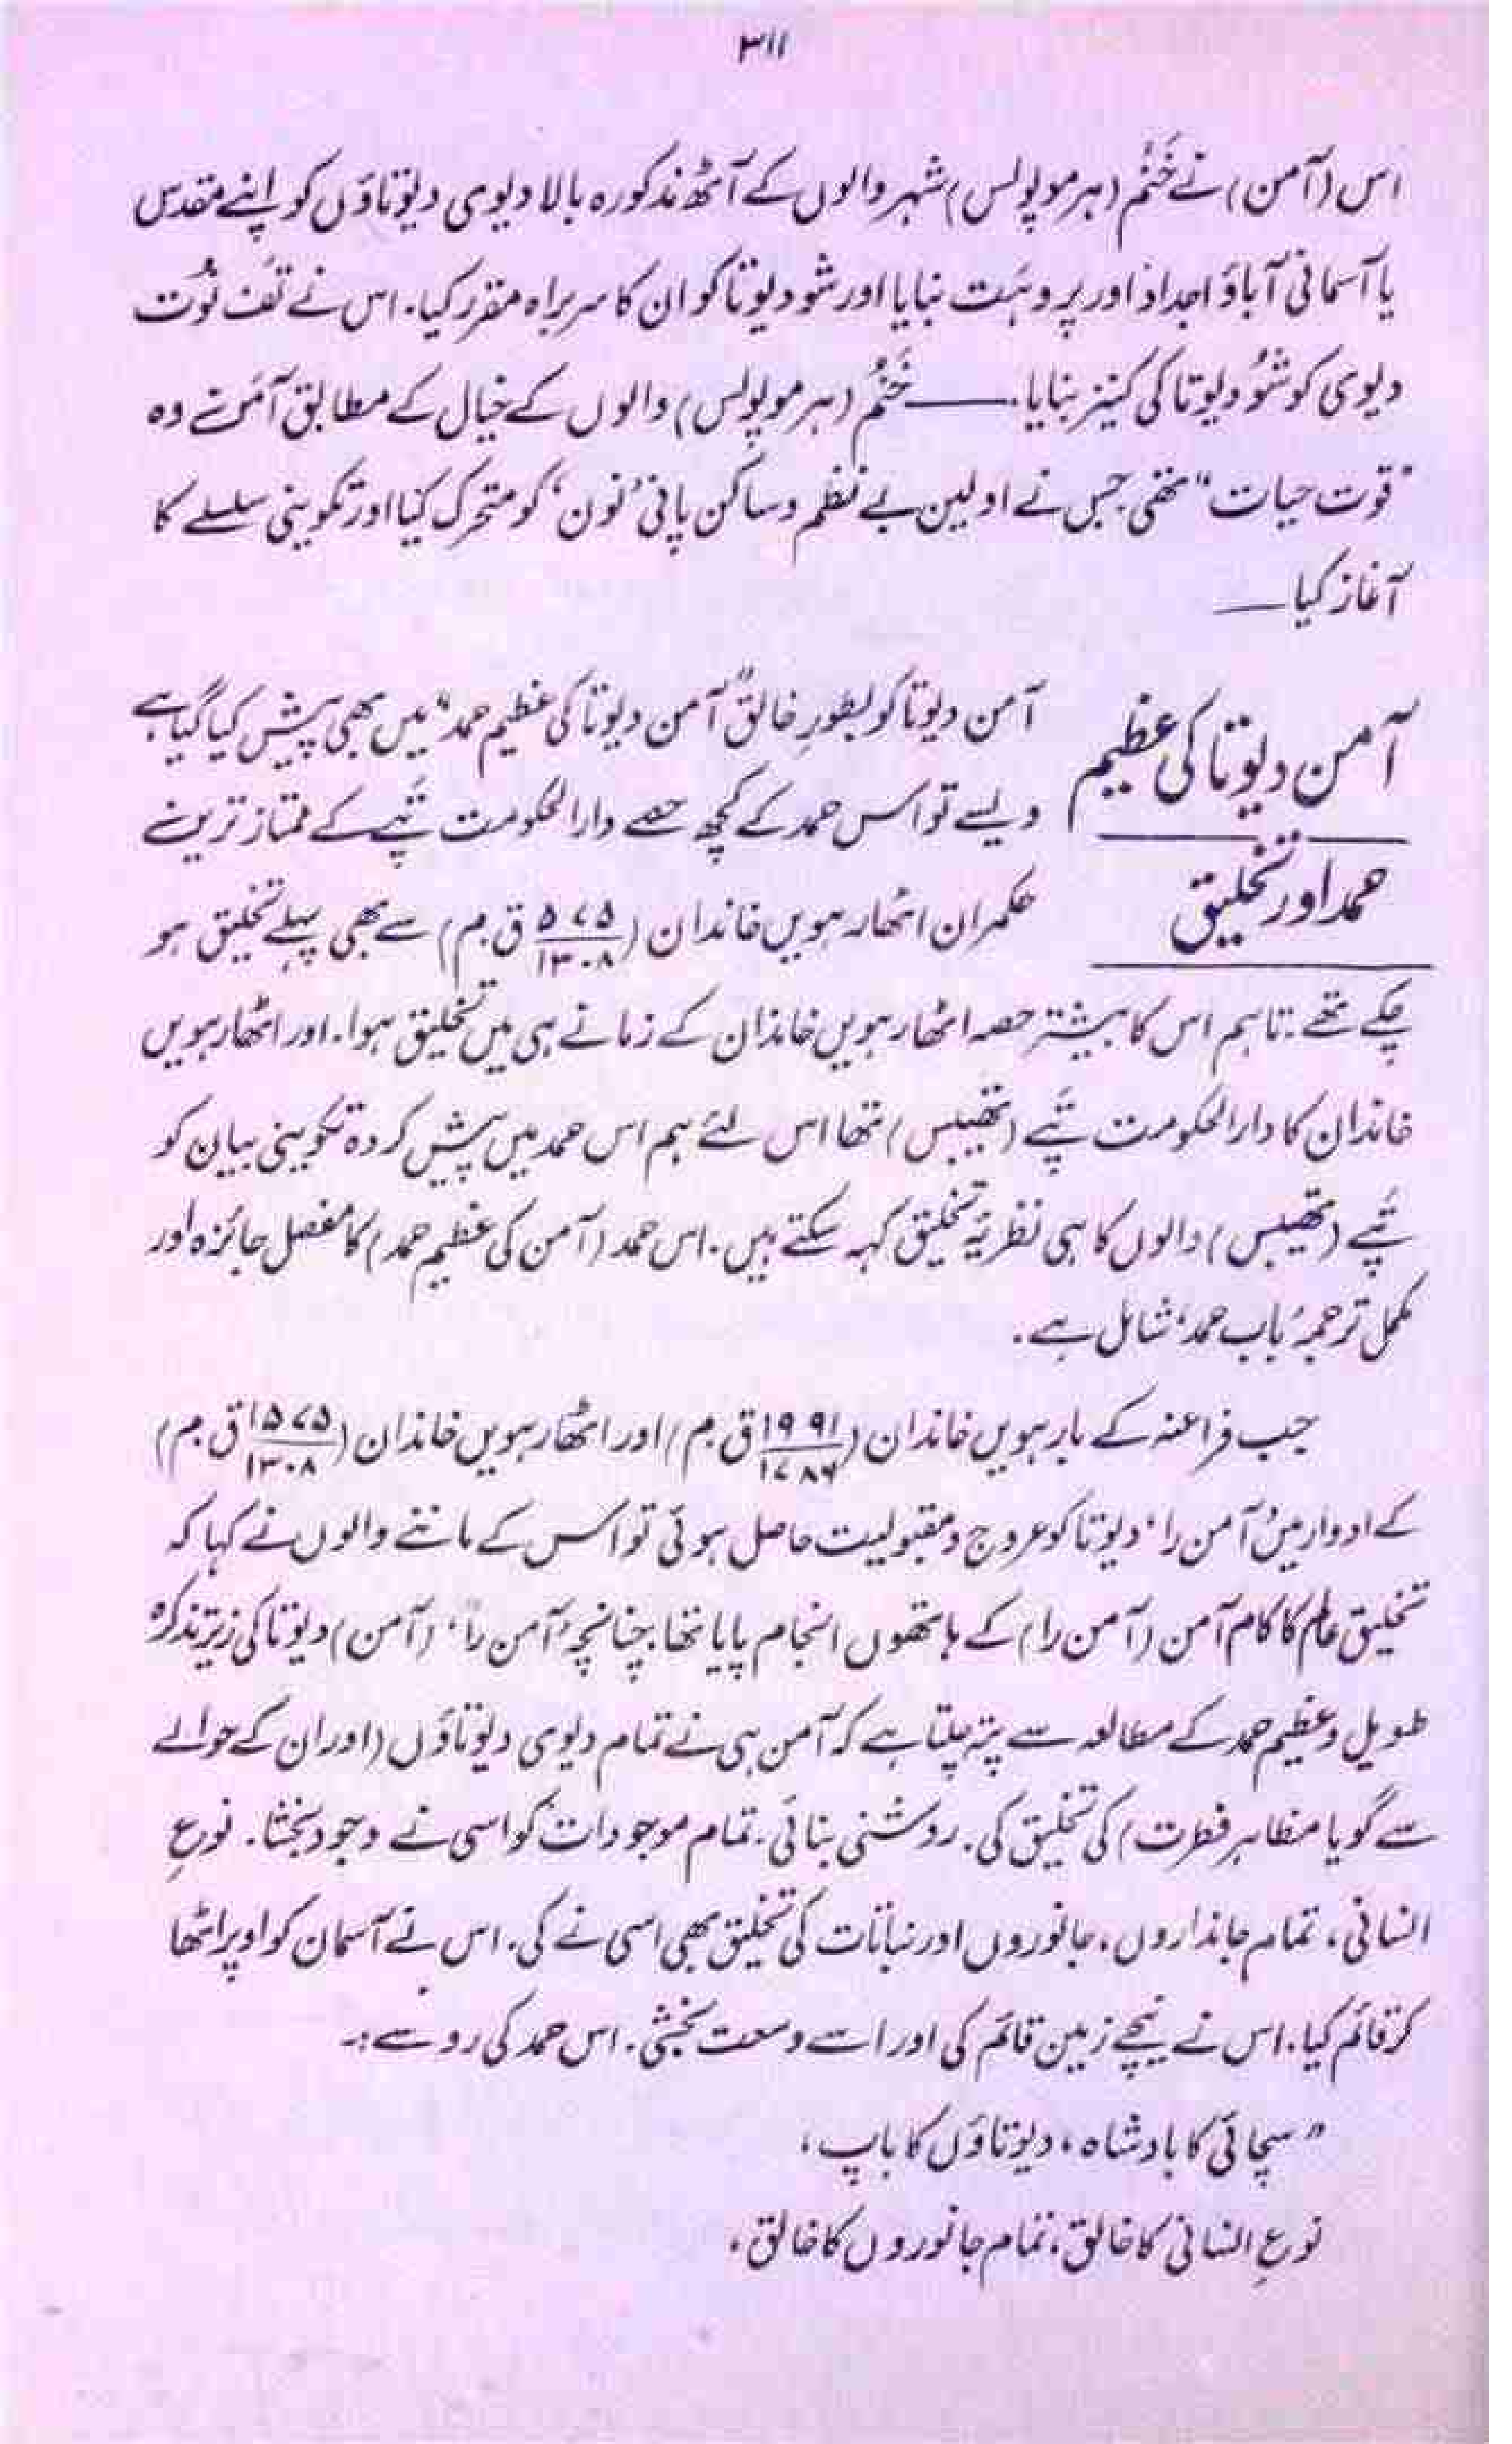 ۳۱۱
اس (آمن) نے خَنُم (ہرموپولس) شہر والوں کے آٹھ مذکورہ بالا دیوی دیوتاؤں کو اپنے مقدس
یا آسمانی آباؤ اجداد اور پروہت بنایا اور شو دیوتا کو ان کا سربراہ مقرر کیا. اس نے تَف نُوت
دیوی کو شُو دیوتا کی کنیز بنایا. —— خَنُم (ہرموپولس) والوں کے خیال کے مطابق آمن نے وہ
"قوت حیات" تھی جس نے اولین بے نظم و ساکن پانی 'نون' کو متحرک کیا اور تکوینی سلسلے کا
آغاز کیا —
آمن دیوتا کی عظیم
حمد اور تخلیق
آمن دیوتا کو بطورِ خالق "آمن دیوتا کی عظیم حمد" میں بھی پیش کیا گیا ہے
ویسے تو اس حمد کے کچھ حصے دارالحکومت تَپے کے ممتاز ترین
حکمران اٹھارہویں خاندان (۵۷۵/۱۳۰۸ ق.م) سے بھی پہلے تخلیق ہو
چکے تھے. تاہم اس کا بیشتر حصہ اٹھارہویں خاندان کے زمانے ہی میں تخلیق ہوا. اور اٹھارہویں
خاندان کا دارالحکومت تَپے (تھیبس) تھا اس لئے ہم اس حمد میں پیش کردہ تکوینی بیان کو
تَپے (تھیبس) والوں کا ہی نظریۂ تخلیق کہہ سکتے ہیں. اس حمد (آمن کی عظیم حمد) کا مفصل جائزہ اور
مکمل ترجمہ 'باب حمد' شامل ہے.
جب فراعنہ کے بارہویں خاندان (۱۹۹۱/۱۷۸۶ ق.م) اور اٹھارہویں خاندان (۱۵۷۵/۱۳۰۸ ق.م)
کے ادوار میں 'آمن را' دیوتا کو عروج و مقبولیت حاصل ہوئی تو اس کے ماننے والوں نے کہا کہ
تخلیق عالم کا کام آمن (آمن را) کے ہاتھوں انجام پایا تھا. چنانچہ 'آمن را' (آمن) دیوتا کی زیر تذکرہ
طویل و عظیم حمد کے مطالعہ سے پتہ چلتا ہے کہ آمن ہی نے تمام دیوی دیوتاؤں (اور ان کے حوالے
سے گویا مظاہر فطرت) کی تخلیق کی. روشنی بنائی. تمام موجودات کو اسی نے وجود بخشا. نوعِ
انسانی، تمام جانداروں، جانوروں اور نباتات کی تخلیق بھی اسی نے کی. اس نے آسمان کو اوپر اٹھا
کر قائم کیا. اس نے نیچے زمین قائم کی اور اسے وسعت بخشی. اس حمد کی رو سے:-
"سچائی کا بادشاہ، دیوتاؤں کا باپ،
نوعِ انسانی کا خالق، تمام جانوروں کا خالق،